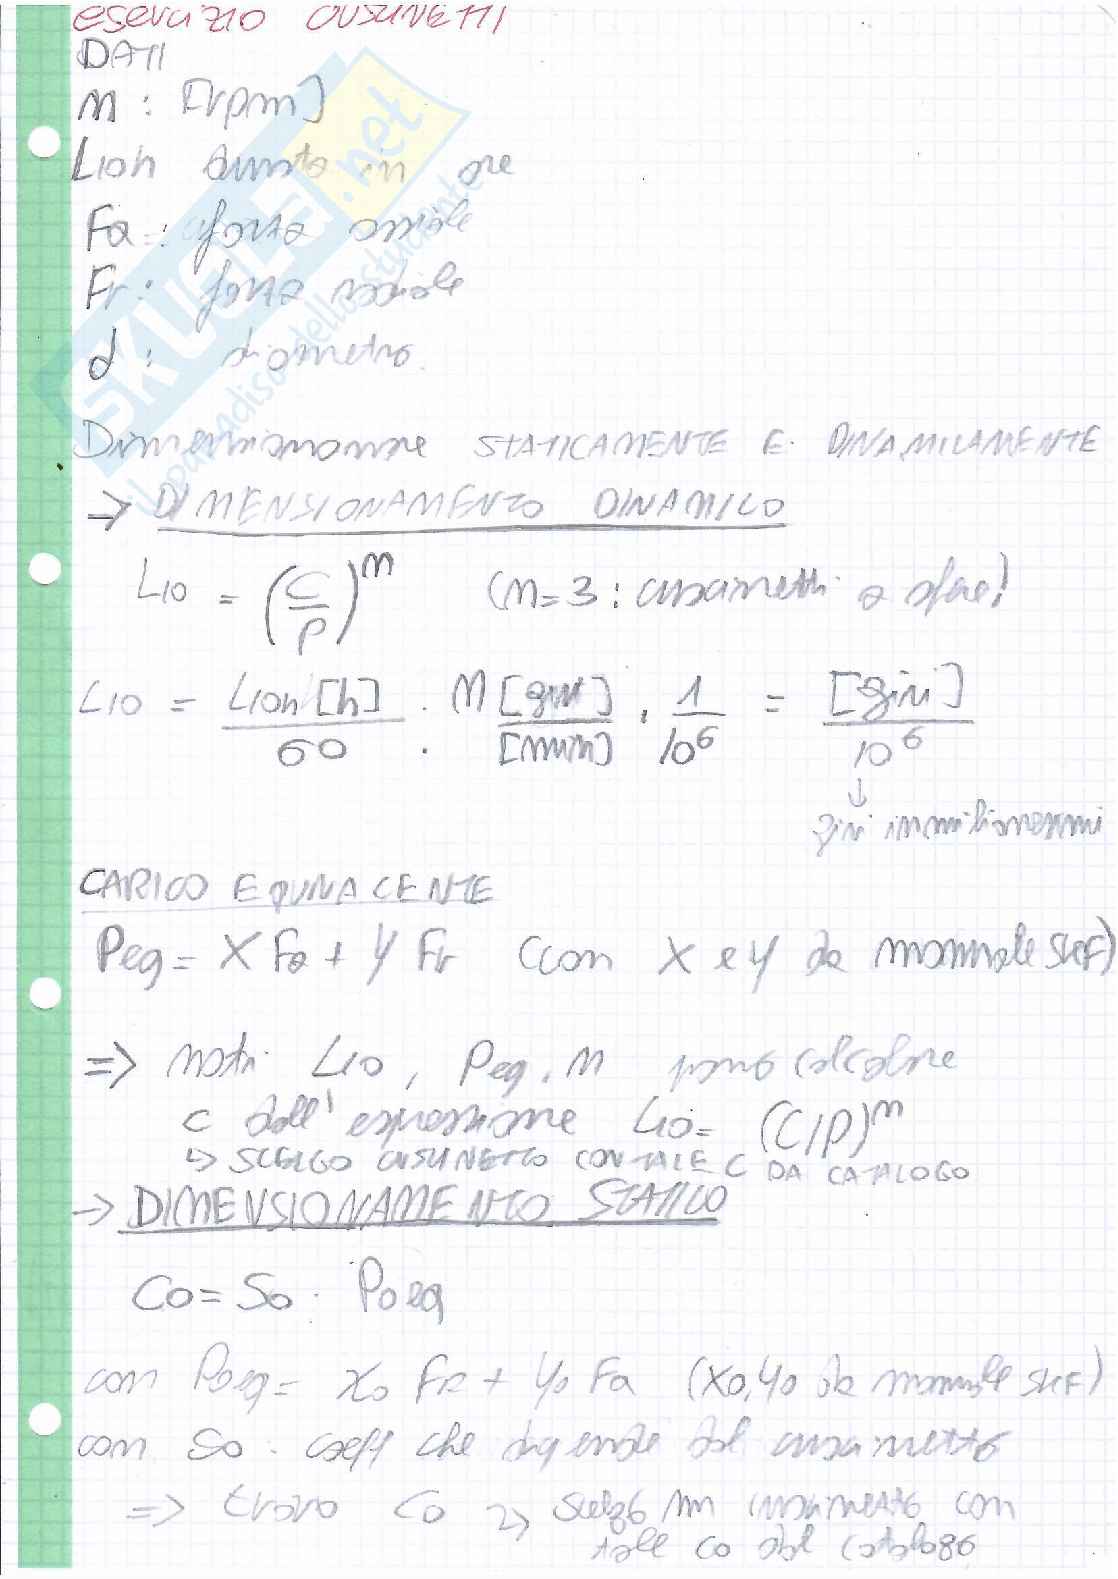 esercizio cuscinetti
DATI
n : [rpm]
L10h durata in ore
Fa : forza assiale
Fr : forza radiale
d : diametro.
SKUOLA.net
il paradiso dello studente
Dimensionare STATICAMENTE E DINAMICAMENTE
=> DIMENSIONAMENTO DINAMICO
L10 = (C/P)^n (n=3 : cuscinetti a sfere)
L10 = L10h [h] / 60 · n [giri] / [min] · 1 / 10^6 = [giri] / 10^6
↓
giri in milionesimi
CARICO EQUIVALENTE
Peq = X Fa + Y Fr (con X e Y da manuale SKF)
=> noti L10, Peq, n posso calcolare
C dall'espressione L10 = (C/P)^n
↳ SCELGO CUSCINETTO CON TALE C DA CATALOGO
-> DIMENSIONAMENTO STATICO
C0 = S0 · P0eq
con P0eq = X0 FR + Y0 Fa (X0, Y0 da manuale SKF)
con S0 : coeff che dipende dal cuscinetto
=> trovo C0 → scelgo un cuscinetto con
tale C0 dal catalogo